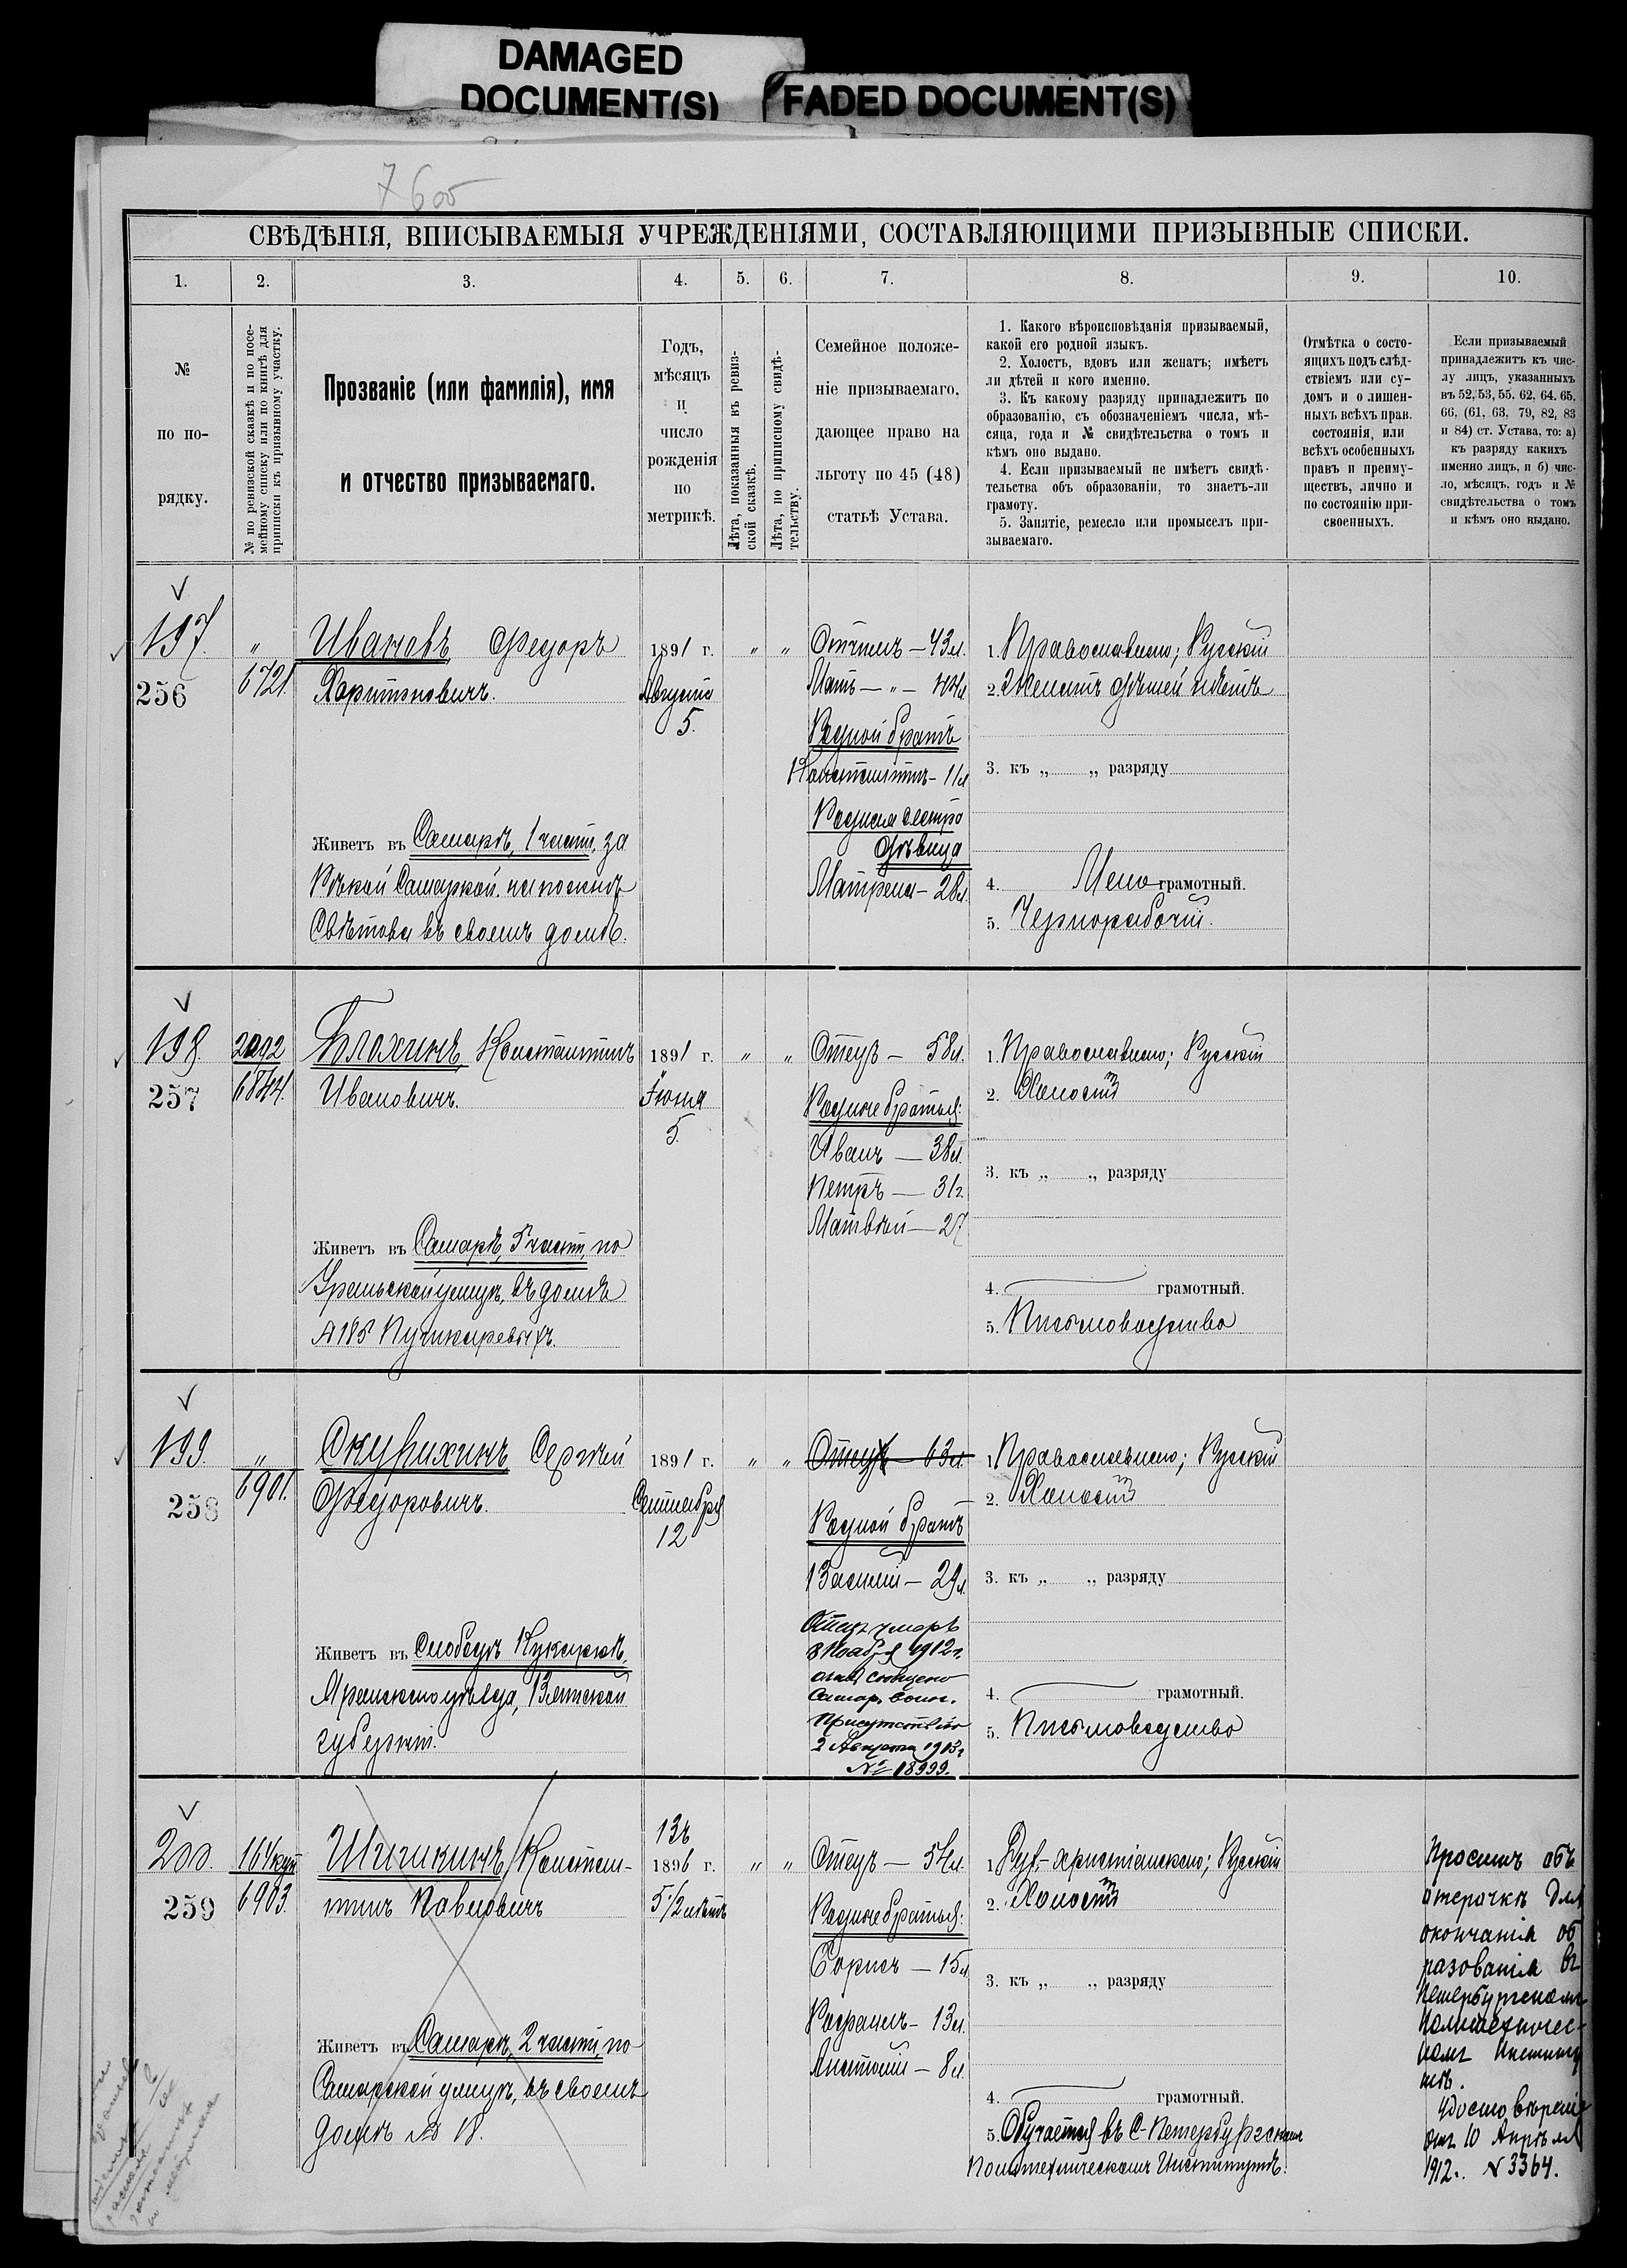 DAMAGED
DOCUMENT(S)
FADED DOCUMENT(S)
7600
СВѢДѢНІЯ, ВПИСЫВАЕМЫЯ УЧРЕЖДЕНІЯМИ, СОСТАВЛЯЮЩИМИ ПРИЗЫВНЫЕ СПИСКИ.
1. 2. 3. 4. 5. 6. 7. 8. 9. 10.
№
по по-
рядку.
№ по ревизской сказкѣ и по посе-
мейному списку или по книгѣ для
приписки къ призывному участку.
Прозваніе (или фамилія), имя
и отчество призываемаго.
Годъ,
мѣсяцъ
и
число
рожденія
по
метрикѣ.
Лѣта, показанныя въ ревиз-
ской сказкѣ.
Лѣта, по приписному свидѣ-
тельству.
Семейное положе-
ніе призываемаго,
дающее право на
льготу по 45 (48)
статьѣ Устава.
1. Какого вѣроисповѣданія призываемый,
какой его родной языкъ.
2. Холостъ, вдовъ или женатъ; имѣетъ
ли дѣтей и кого именно.
3. Къ какому разряду принадлежитъ по
образованію, съ обозначеніемъ числа, мѣ-
сяца, года и № свидѣтельства о томъ и
кѣмъ оно выдано.
4. Если призываемый не имѣетъ свидѣ-
тельства объ образованіи, то знаетъ-ли
грамоту.
5. Занятіе, ремесло или промыселъ при-
зываемаго.
Отмѣтка о состо-
ящихъ подъ слѣд-
ствіемъ или су-
домъ и о лишен-
ныхъ всѣхъ прав.
состоянія, или
всѣхъ особенныхъ
правъ и преиму-
ществъ, лично и
по состоянію при-
своенныхъ.
Если призываемый
принадлежитъ къ чис-
лу лицъ, указанныхъ
въ 52, 53, 55, 62, 64, 65,
66, (61, 63, 79, 82, 83
и 84) ст. Устава, то: а)
къ разряду какихъ
именно лицъ, и б) чис-
ло, мѣсяцъ, годъ и №
свидѣтельства о томъ
и кѣмъ оно выдано.
197.
256
"
6721
Ивановъ Федоръ
Харитоновичъ.
Живетъ въ Самарѣ, 1 части, за
Рѣкой Самаркой на
Свѣтова въ своемъ домѣ.
1891 г.
Августа
5.
" "
Отчимъ — 43 л.
Мать — " — 44 л
Родной братъ
Константинъ — 11 л
Родная сестра
дѣвица
Матрена — 28 л.
1. Православнаго; Русскій
2. Женатъ дѣтей нѣтъ
3. къ „ „ разряду
4. Мало грамотный.
5. Чернорабочій.
198.
257
2092
6844.
Блохинъ, Константинъ
Ивановичъ.
Живетъ въ Самарѣ, 5 части, по
Уральской улицѣ, въ домѣ
№ 185 Пушкаревыхъ.
1891 г.
Іюня
5.
" "
Отецъ — 58 л.
Родные братья:
Иванъ — 38 л.
Петръ — 31 г.
Матвѣй — 27
1. Православнаго; Русскій
2. Холостъ
3. къ „ „ разряду
4. грамотный.
5. Письмоводство
199.
258
"
6901.
Скурихинъ Сергѣй
Федоровичъ.
Живетъ въ Слободѣ Кукаркѣ,
Яранскаго уѣзда, Вятской
губерніи.
1891 г.
Сентября
12
" "
Отецъ — 63 л.
Родной братъ
Василій — 29 л.
Отецъ умеръ
8 Ноября 1912 г.
о чемъ сообщено
Самар. воин.
Присутствію
2 Августа 1913 г
№ 18999.
1. Православнаго; Русскій
2. Холостъ
3. къ „ „ разряду
4. грамотный.
5. Письмоводство
200.
259
164 куп
6903.
Шишкинъ, Констан-
тинъ Павловичъ
Живетъ въ Самарѣ, 2 части, по
Самарской улицѣ, въ своемъ
домѣ № 18.
189 г.
5 1/2 лѣтъ
" "
Отецъ — 54 л.
Родные братья:
Борисъ — 15 л
Рафаилъ — 13 л.
Анатолій — 8 л.
1. христіанскаго; Русскій
2. Холостъ
3. къ „ „ разряду
4. грамотный.
5. Обучается въ С-Петербургскомъ
Политехническомъ Институтѣ.
Проситъ объ
отсрочкѣ для
окончанія об
разованія въ
Петербургскомъ
Политехничес-
комъ Институ
тѣ.
Удостовѣреніе
отъ 10 Апрѣля
1912 г. № 3364.